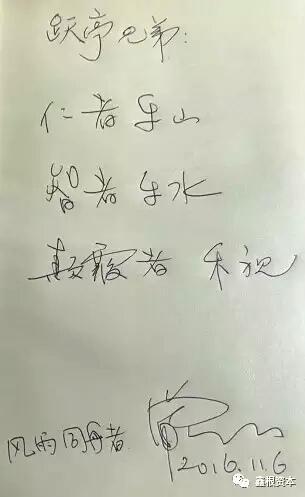 跃亭兄弟:
仁者乐山
智者乐水
颠覆者 乐视
风雨同舟者
2016.11.6
鑫根资本